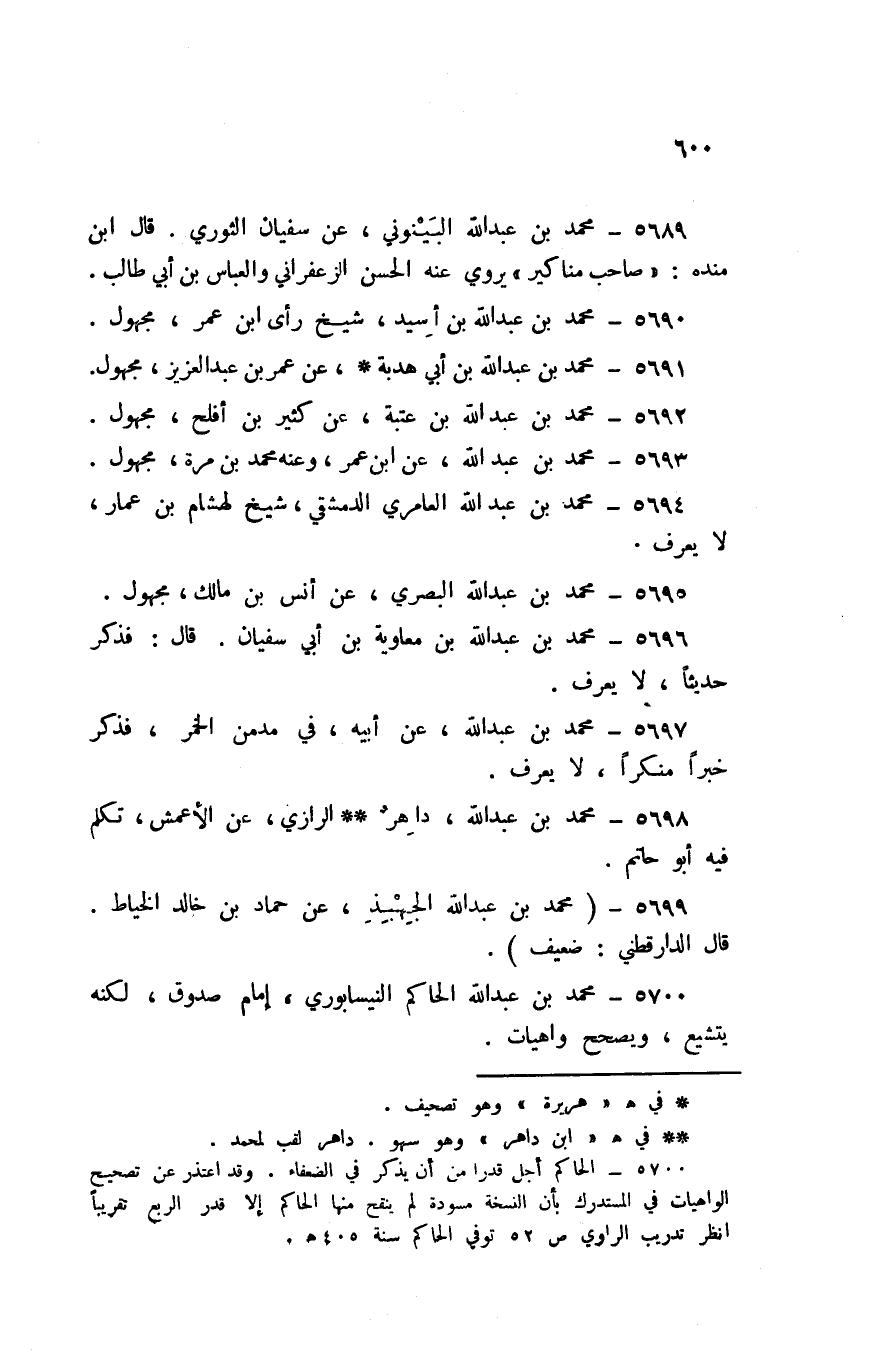 ٦٠٠
٥٦٨٩ – محمد بن عبدالله البَيْنوني ، عن سفيان الثوري . قال ابن
منده : « صاحب مناكير » يروي عنه الحسن الزعفراني والعباس بن أبي طالب .
٥٦٩٠ – محمد بن عبدالله بن أسِيد ، شيخ رأى ابن عمر ، مجهول .
٥٦٩١ – محمد بن عبدالله بن أبي هدبة * ، عن عمر بن عبدالعزيز ، مجهول.
٥٦٩٢ – محمد بن عبدالله بن عتبة ، عن كثير بن أفلح ، مجهول .
٥٦٩٣ – محمد بن عبدالله ، عن ابن عمر ، وعنه محمد بن مرة ، مجهول .
٥٦٩٤ – محمد بن عبدالله العامري الدمشقي ، شيخ لهشام بن عمار ،
لا يعرف .
٥٦٩٥ – محمد بن عبدالله البصري ، عن أنس بن مالك ، مجهول .
٥٦٩٦ – محمد بن عبدالله بن معاوية بن أبي سفيان . قال : فذكر
حديثاً ، لا يعرف .
٥٦٩٧ – محمد بن عبدالله ، عن أبيه ، في مدمن الخمر ، فذكر
خبراً منكراً ، لا يعرف .
٥٦٩٨ – محمد بن عبدالله ، داهِرُ ** الرازي ، عن الأعمش ، تكلم
فيه أبو حاتم .
٥٦٩٩ – ( محمد بن عبدالله الجِهْبِذِ ، عن حماد بن خالد الخياط .
قال الدارقطني : ضعيف ) .
٥٧٠٠ – محمد بن عبدالله الحاكم النيسابوري ، إمام صدوق ، لكنه
يتشيع ، ويصحح واهيات .
* في ه « هريرة » وهو تصحيف .
** في ه « ابن داهر » وهو سهو . داهر لقب لمحمد .
٥٧٠٠ – الحاكم أجل قدرا من أن يذكر في الضعفاء . وقد اعتذر عن تصحيح
الواهيات في المستدرك بأن النسخة مسودة لم ينقح منها الحاكم إلا قدر الربع تقريباً
انظر تدريب الراوي ص ٥٢ توفي الحاكم سنة ٤٠٥ه .